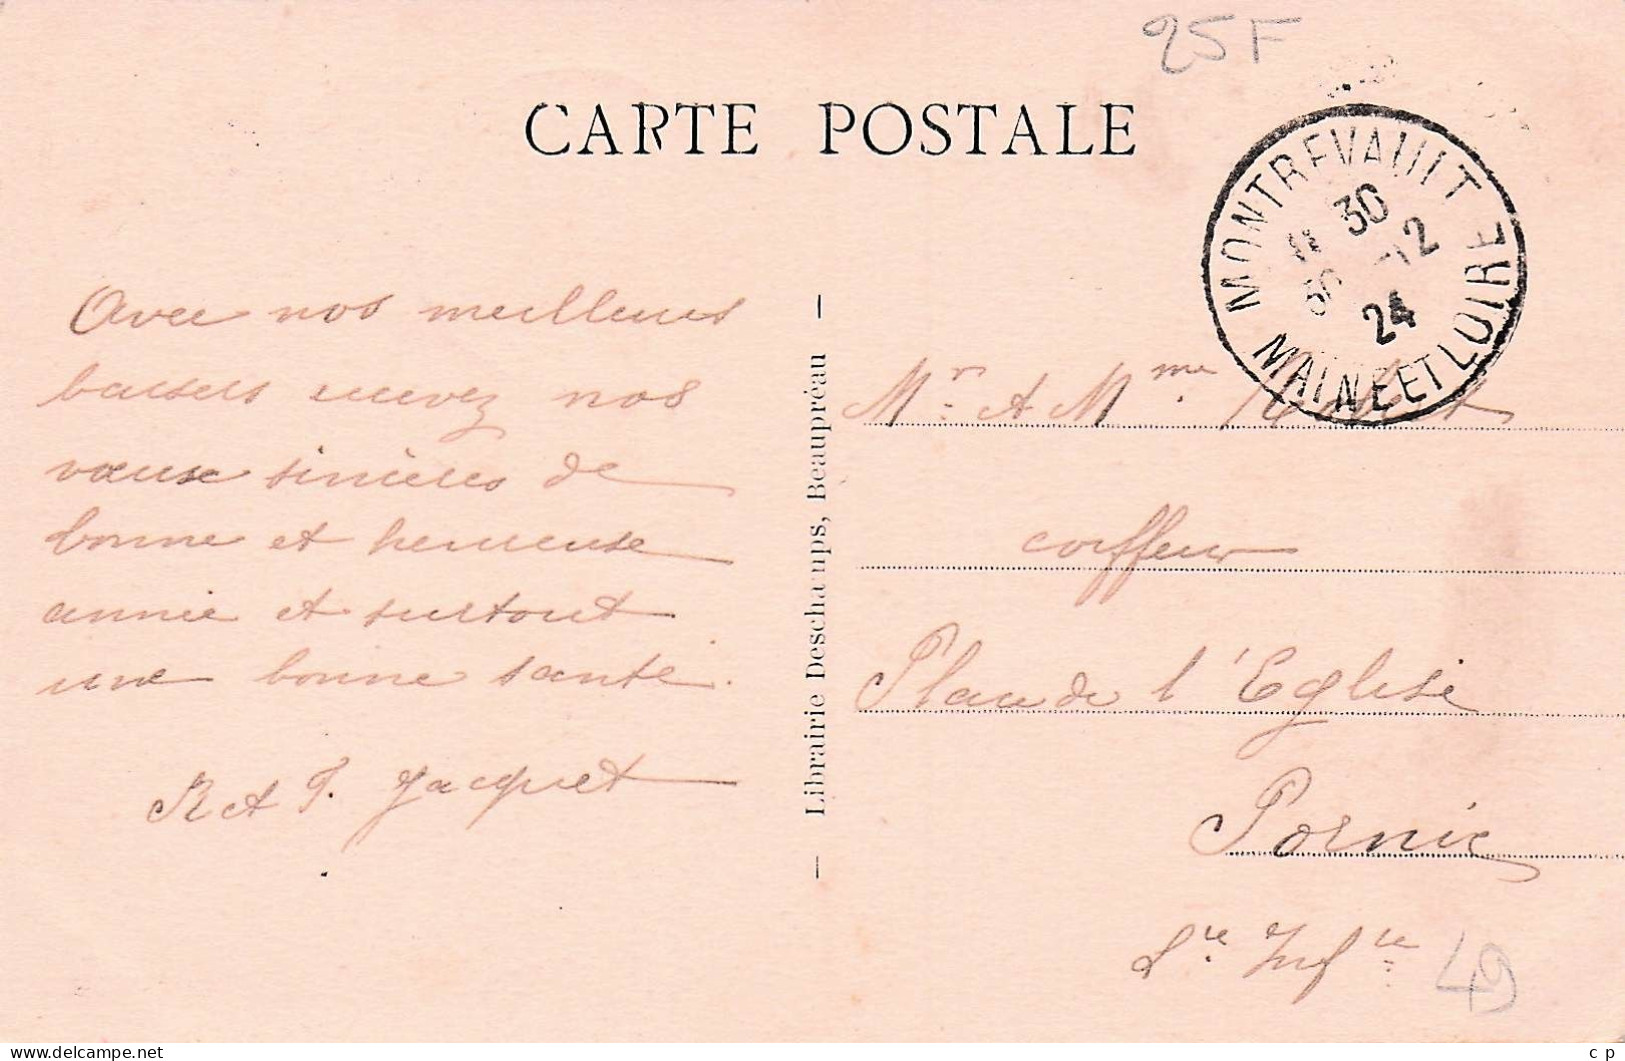 25F
CARTE POSTALE
MONTREVAULT
30
30 -12
24
MAINE ET LOIRE
Avec nos meilleurs
baisers recevez nos
vœux sincères de
bonne et heureuse
année et surtout
une bonne santé.
R et F. Jacquet
Librairie Deschamps, Beaupréau
Mr et Mme
coiffeur
Place de l'Eglise
Pornic
Lre Infre
49
Delcampe.net
c p